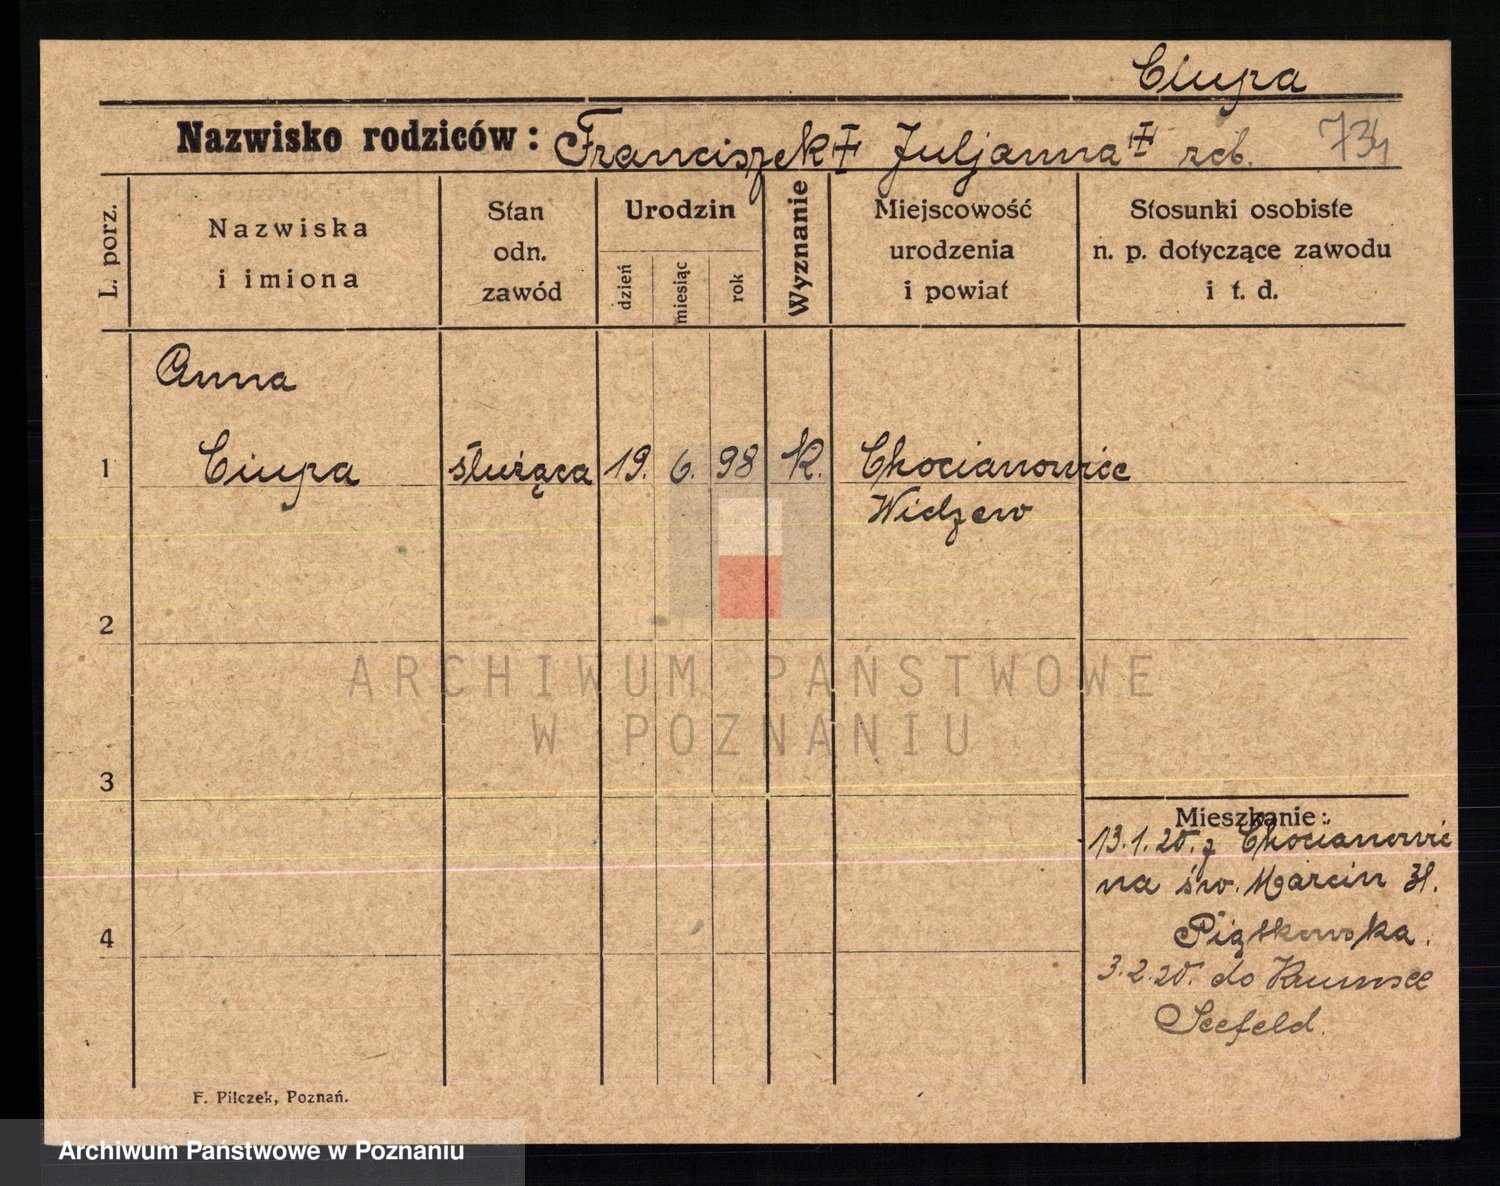 Ciupa
Nazwisko rodziców: Franciszek Juljanna rob. 734
L. porz.
Nazwiska
i imiona
Stan
odn.
zawód
Urodzin
dzień
miesiąc
rok
Wyznanie
Miejscowość
urodzenia
i powiat
Stosunki osobiste
n. p. dotyczące zawodu
i t. d.
Anna
1 Ciupa służąca 19. 6. 98 K. Chocianowice
Widzew
2
ARCHIWUM PAŃSTWOWE
W POZNANIU
3
Mieszkanie:
13.1.20. z Chocianowic
na św. Marcin 31.
4 Piątkowska.
3.2.20. do
Seefeld.
F. Pilczek, Poznań.
Archiwum Państwowe w Poznaniu